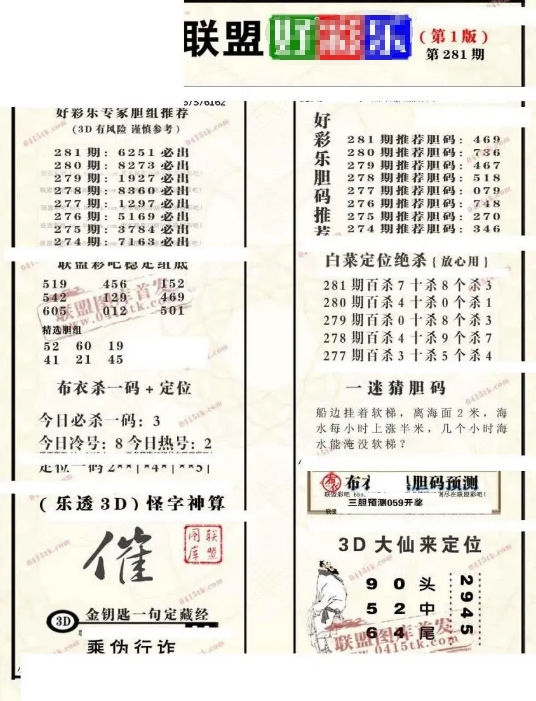 联盟 好彩乐
(第1版)
第281期
好彩乐专家胆组推荐
(3D有风险 谨慎参考)
281期: 6251必出
280期: 8273必出
279期: 1927必出
278期: 8360必出
277期: 1297必出
276期: 5169必出
275期: 3784必出
274期: 7163必出
联盟彩吧稳定组底
519 456 152
542 129 469
605 012 501
精选胆组
52 60 19
41 21 45
布衣杀一码+定位
今日必杀一码: 3
今日冷号: 8 今日热号: 2
定位一码 2**|*4*|**5|
(乐透3D)怪字神算
催
联盟图库
3D 金钥匙一句定藏经
乘伪行诈
好彩乐胆码推荐
281期推荐胆码: 469
280期推荐胆码: 736
279期推荐胆码: 467
278期推荐胆码: 518
277期推荐胆码: 079
276期推荐胆码: 748
275期推荐胆码: 270
274期推荐胆码: 346
白菜定位绝杀{放心用}
281期百杀7十杀8个杀3
280期百杀4十杀0个杀1
279期百杀0十杀8个杀3
278期百杀4十杀9个杀7
277期百杀3十杀5个杀4
一迷猜胆码
船边挂着软梯，离海面2米，海
水每小时上涨半米，几个小时海
水能淹没软梯？
布衣 胆码预测
三胆预测059开奖
3D大仙来定位
9 0 头
5 2 中
6 4 尾
2945
联盟图库首发
www.0415tk.com